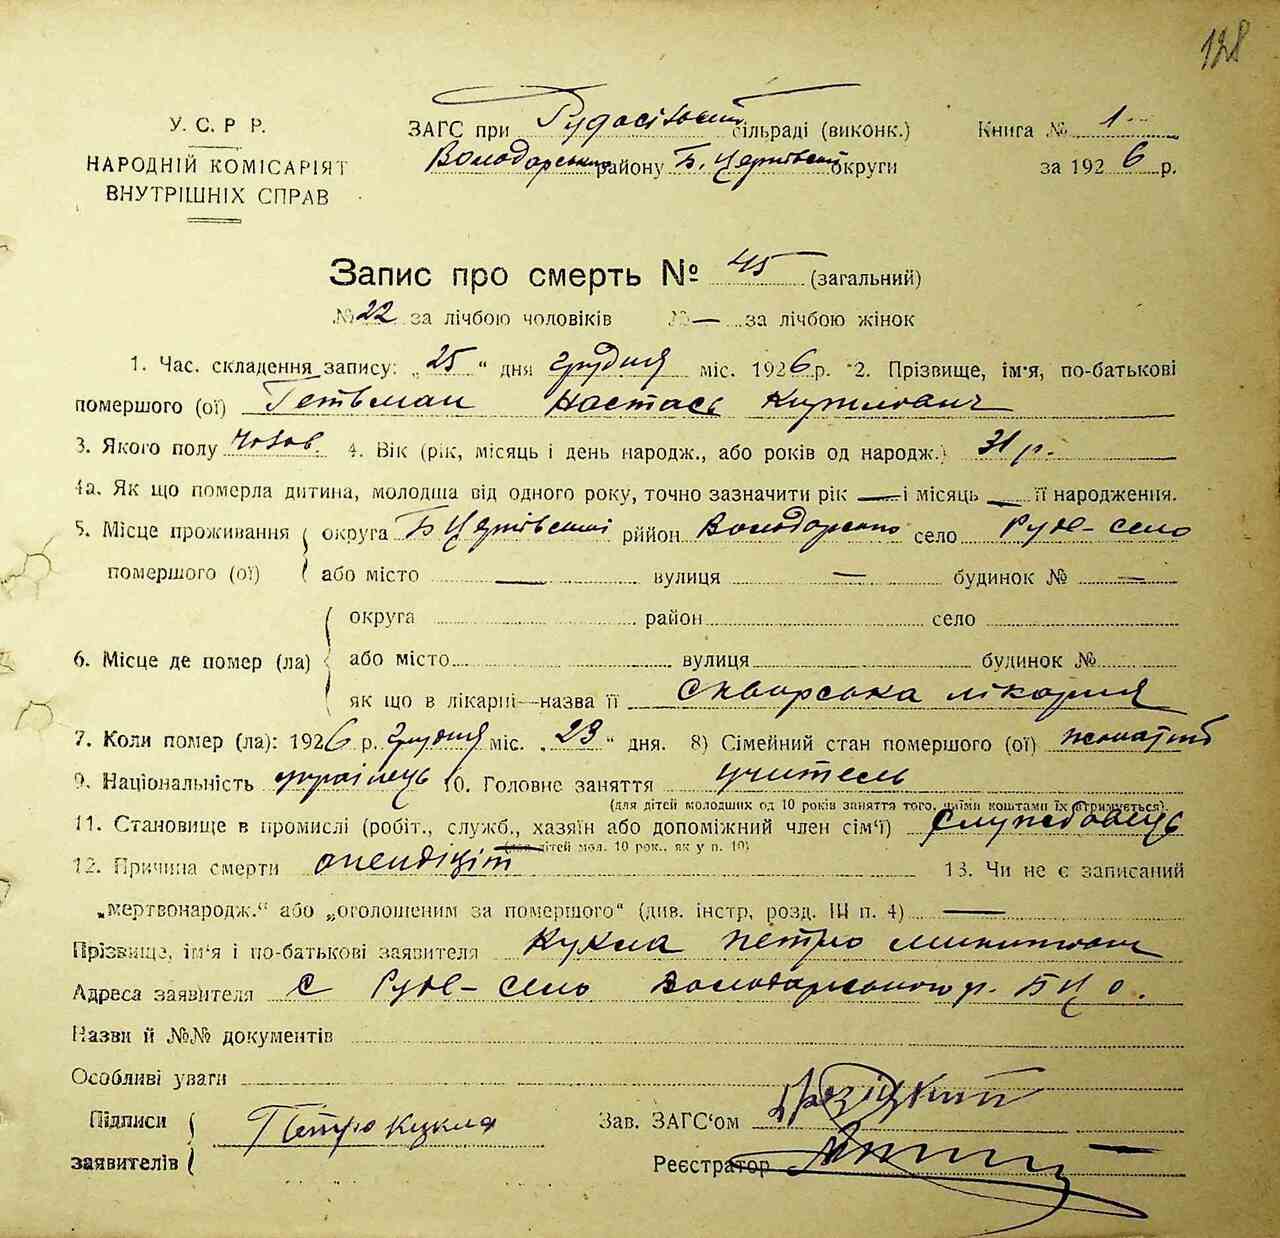 128
У. С. Р. Р.
НАРОДНІЙ КОМІСАРІЯТ
ВНУТРІШНІХ СПРАВ
ЗАГС при Рудосільській сільраді (виконк.)
Володарського району Б. Церківської округи
Книга № 1
за 1926 р.
Запис про смерть № 45 (загальний)
№ 22 за лічбою чоловіків № — за лічбою жінок
1. Час складення запису: „25“ дня грудня міс. 1926 р. 2. Прізвище, ім'я, по-батькові
помершого (ої) Гетьман Настась Кирилович
3. Якого полу чолов. 4. Вік (рік, місяць і день народж., або років од народж.) 31 р.
4а. Як що померла дитина, молодша від одного року, точно зазначити рік — і місяць — її народження.
5. Місце проживання округа Б Церківської рййон Володарського село Руде-село
помершого (ої) або місто — вулиця — будинок № —
округа район село
6. Місце де помер (ла) або місто вулиця будинок №
як що в лікарні—назва її Сквирська лікарня
7. Коли помер (ла): 1926 р. грудня міс. „23“ дня. 8) Сімейний стан помершого (ої) жонатий
9. Національність українець 10. Головне заняття учитель
(для дітей молодших од 10 років заняття того, чиїми коштами їх втримується).
11. Становище в промислі (робіт., служб., хазяїн або допоміжний член сім'ї) службовець
(для дітей мол. 10 рок., як у п. 10)
12. Причина смерти апендіцит — 13. Чи не є записаний
„мертвонародж.“ або „оголошеним за помершого“ (див. інстр, розд. III п. 4) —
Прізвище, ім'я і по-батькові заявителя Кукла Петро Микитович
Адреса заявителя с Руде-село Володарського р. Б Ц о.
Назви й №№ документів
Особливі уваги
Підписи
заявителів Петро Кукла
Зав. ЗАГС'ом
Реєстратор